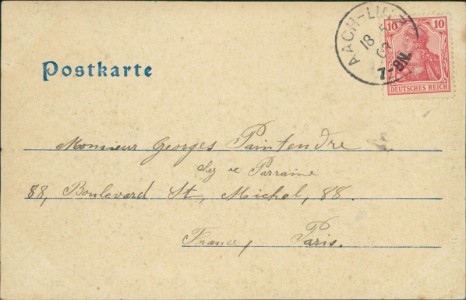 AACH-LINZ
10 10
18 5
7-8N.
DEUTSCHES REICH
Postkarte
Monsieur Georges Paintendre
chez ce Parraine
88, Boulevard St, Michel, 88.
France, Paris.